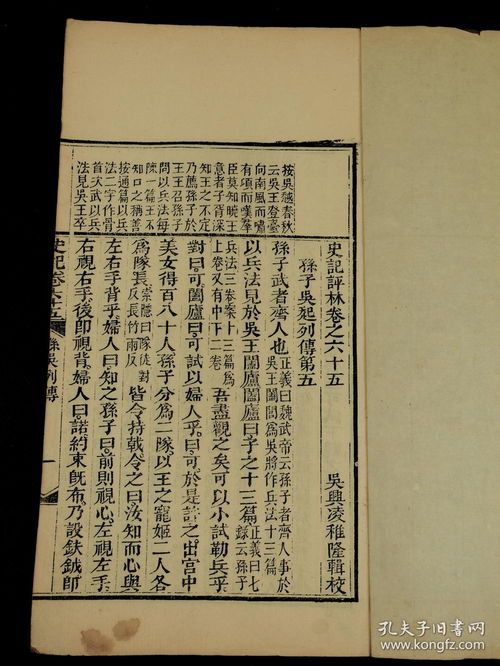 按吳越春秋
云吳王登臺
向南風而嘯
有頃而嘆羣
臣莫知曉王
意者子胥深
知王之不定
乃薦孫子於
王王召孫子
問以兵法每
陳一篇王不
知口之稱善
按通篇以兵
法二字作骨
首次武以兵
法見吳王卒
史記評林卷之六十五 吳興凌稚隆輯校
孫子吳起列傳第五
孫子武者齊人也正義曰魏武帝云孫子者齊人事於吳王闔閭爲吳將作兵法十三篇
以兵法見於吳王闔廬闔廬曰子之十三篇正義曰七錄云孫子
兵法三卷案十三篇爲上卷又有中下二卷吾盡觀之矣可以小試勒兵乎
對曰可闔廬曰可試以婦人乎曰可於是許之出宮中
美女得百八十人孫子分爲二隊以王之寵姬二人各
爲隊長索隱曰隊徒對反長竹兩反皆令持戟令之曰汝知而心與
左右手背乎婦人曰知之孫子曰前則視心左視左手
右視右手後卽視背婦人曰諾約束旣布乃設鈇鉞卽
史記卷六十五 孫吳列傳 一
孔夫子旧书网
www.kongfz.com